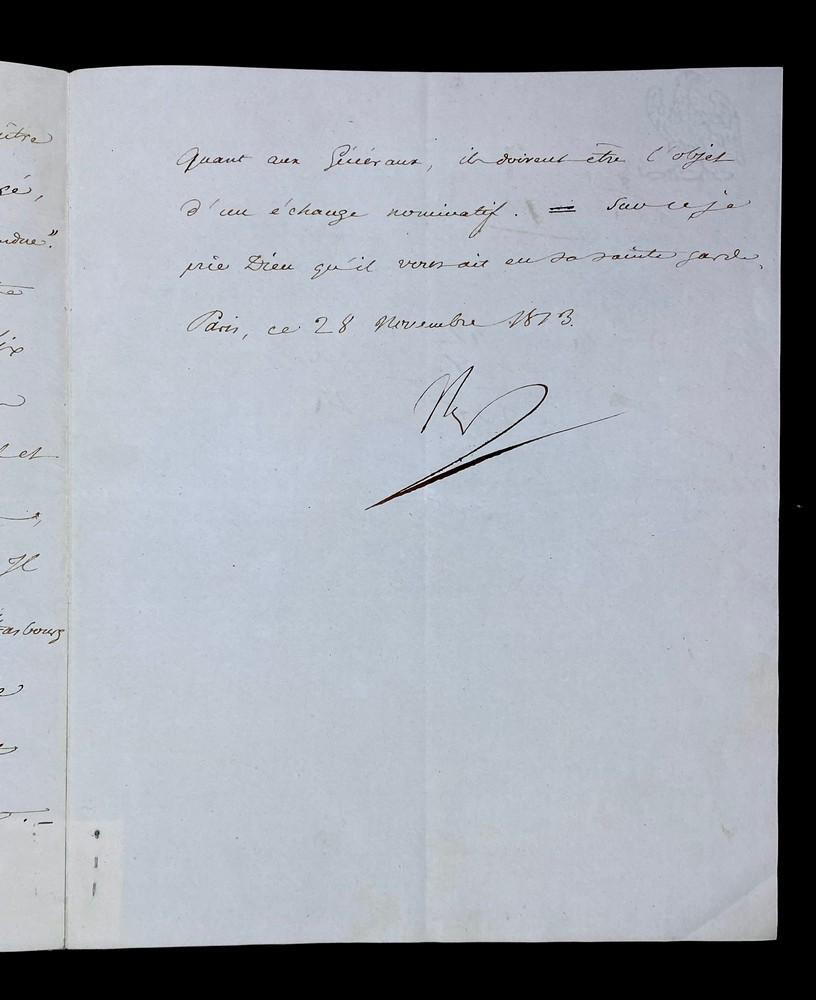 ître
sé,
ndue".
et
Il
rasbourg
Quant aux Généraux, ils doivent être l'objet
d'un échange nominatif. = Sur ce je
prie Dieu qu'il vous ait en sa sainte garde,
Paris, ce 28 Novembre 1813.